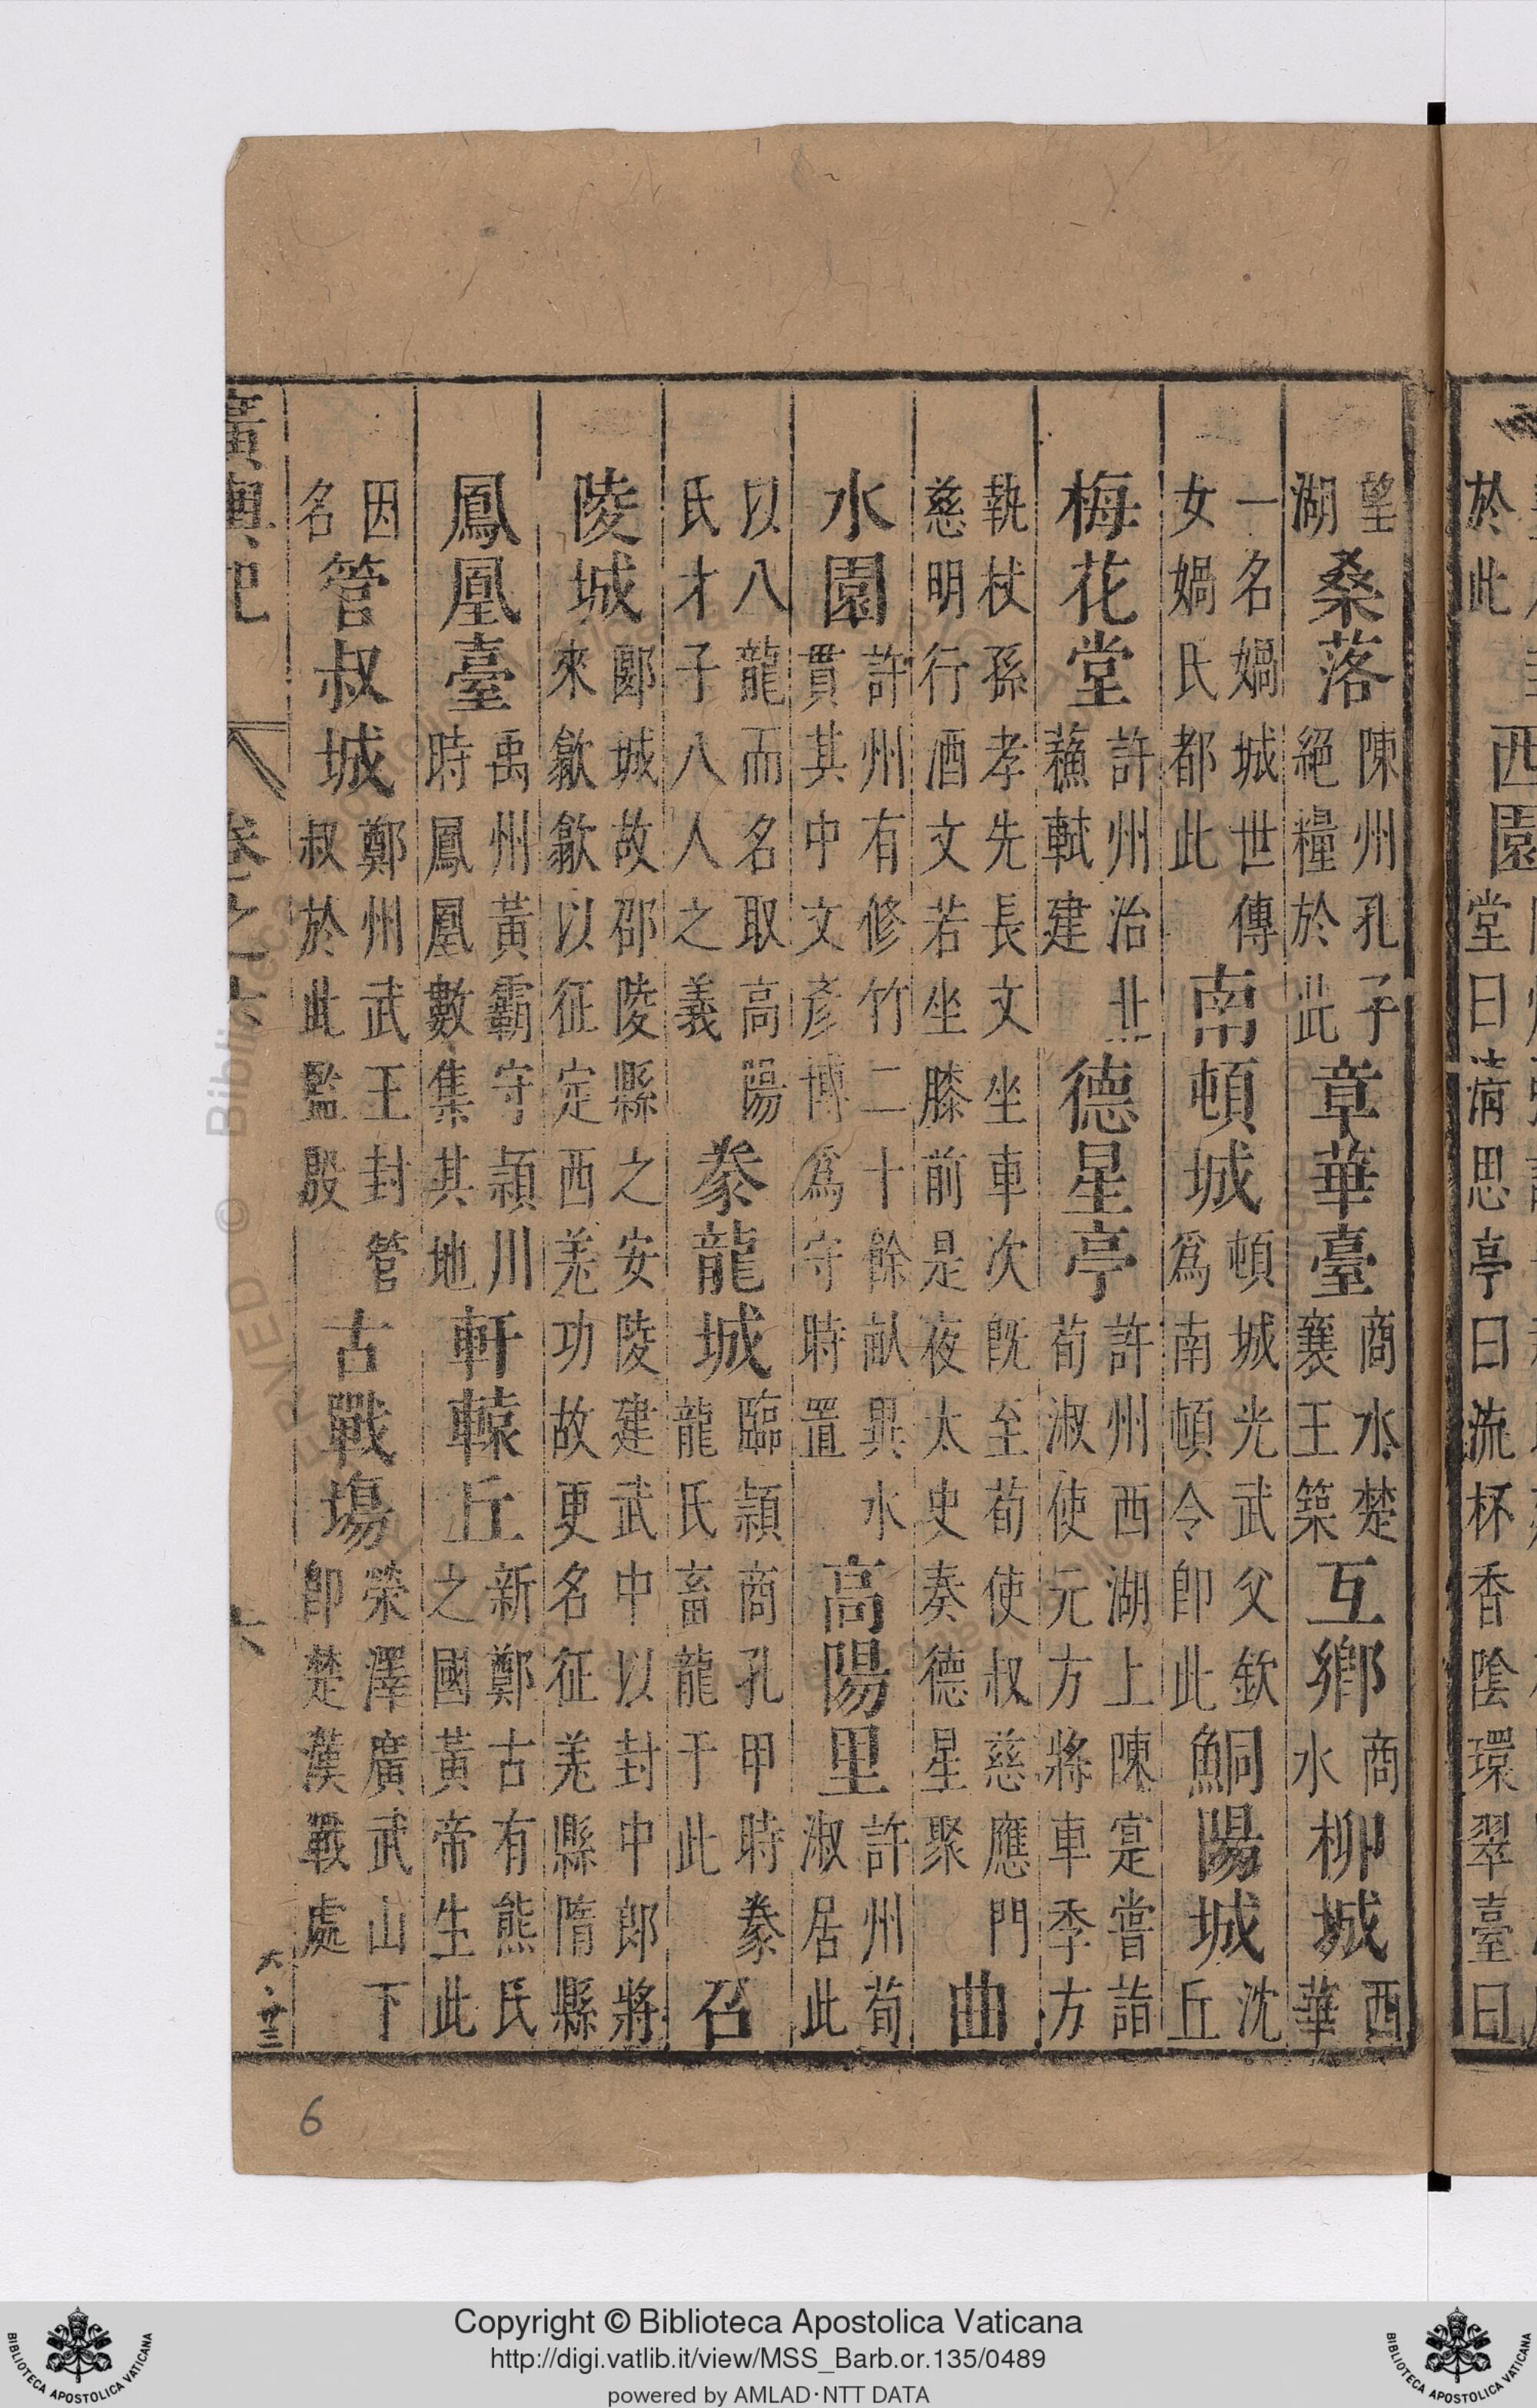 於此西園堂曰清思亭曰流杯香陰環翠臺曰
望湖桑落陳州孔子絕糧於此章華臺商水楚襄王築互鄉商水柳城西華
一名媧城世傳女媧氏都此南頓城頓城光武父欽爲南頓令即此鮦陽城沈丘
梅花堂許州治北蘓軾建德星亭許州西湖上陳寔嘗詣荀淑使元方將車季方
執杖孫孝先長文坐車次既至荀使叔慈應門慈明行酒文若坐膝前是夜太史奏德星聚曲
水園許州有修竹二十餘畝異水貫其中文彥博爲守時置高陽里許州荀淑居此
以八龍而名取高陽氏才子八人之義豢龍城臨潁商孔甲時豢龍氏畜龍于此召
陵城郾城故邵陵縣之安陵建武中以封中郎將來歙歙以征定西羌功故更名征羌縣隋縣
鳳凰臺禹州黃霸守潁川時鳳凰數集其地軒轅丘新鄭古有熊氏之國黃帝生此
因名管叔城鄭州武王封管叔於此監殷古戰場滎澤廣武山下即楚漢戰處
廣輿記 卷之六 六
6
Copyright © Biblioteca Apostolica Vaticana
http://digi.vatlib.it/view/MSS_Barb.or.135/0489
powered by AMLAD·NTT DATA
BIBLIOTECA APOSTOLICA VATICANA
BIBLIOTECA APOSTOLICA VATICANA